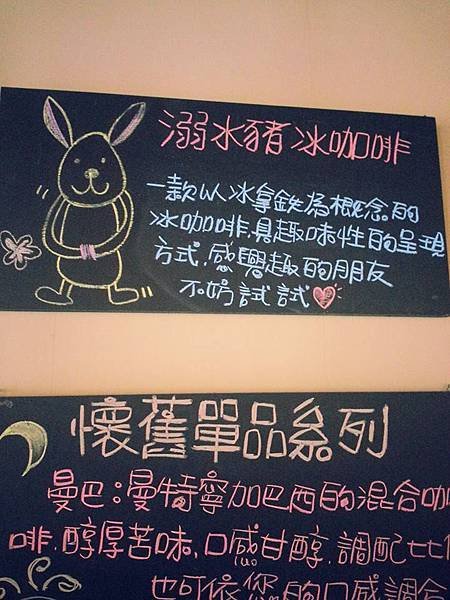 溺水豬冰咖啡
一款以冰拿鐵為概念的
冰咖啡,具趣味性的呈現
方式,感興趣的朋友
不妨試試
懷舊單品系列
曼巴:曼特寧加巴西的混合咖
啡,醇厚苦味,口感甘醇,調配比
也可依您的口感調合